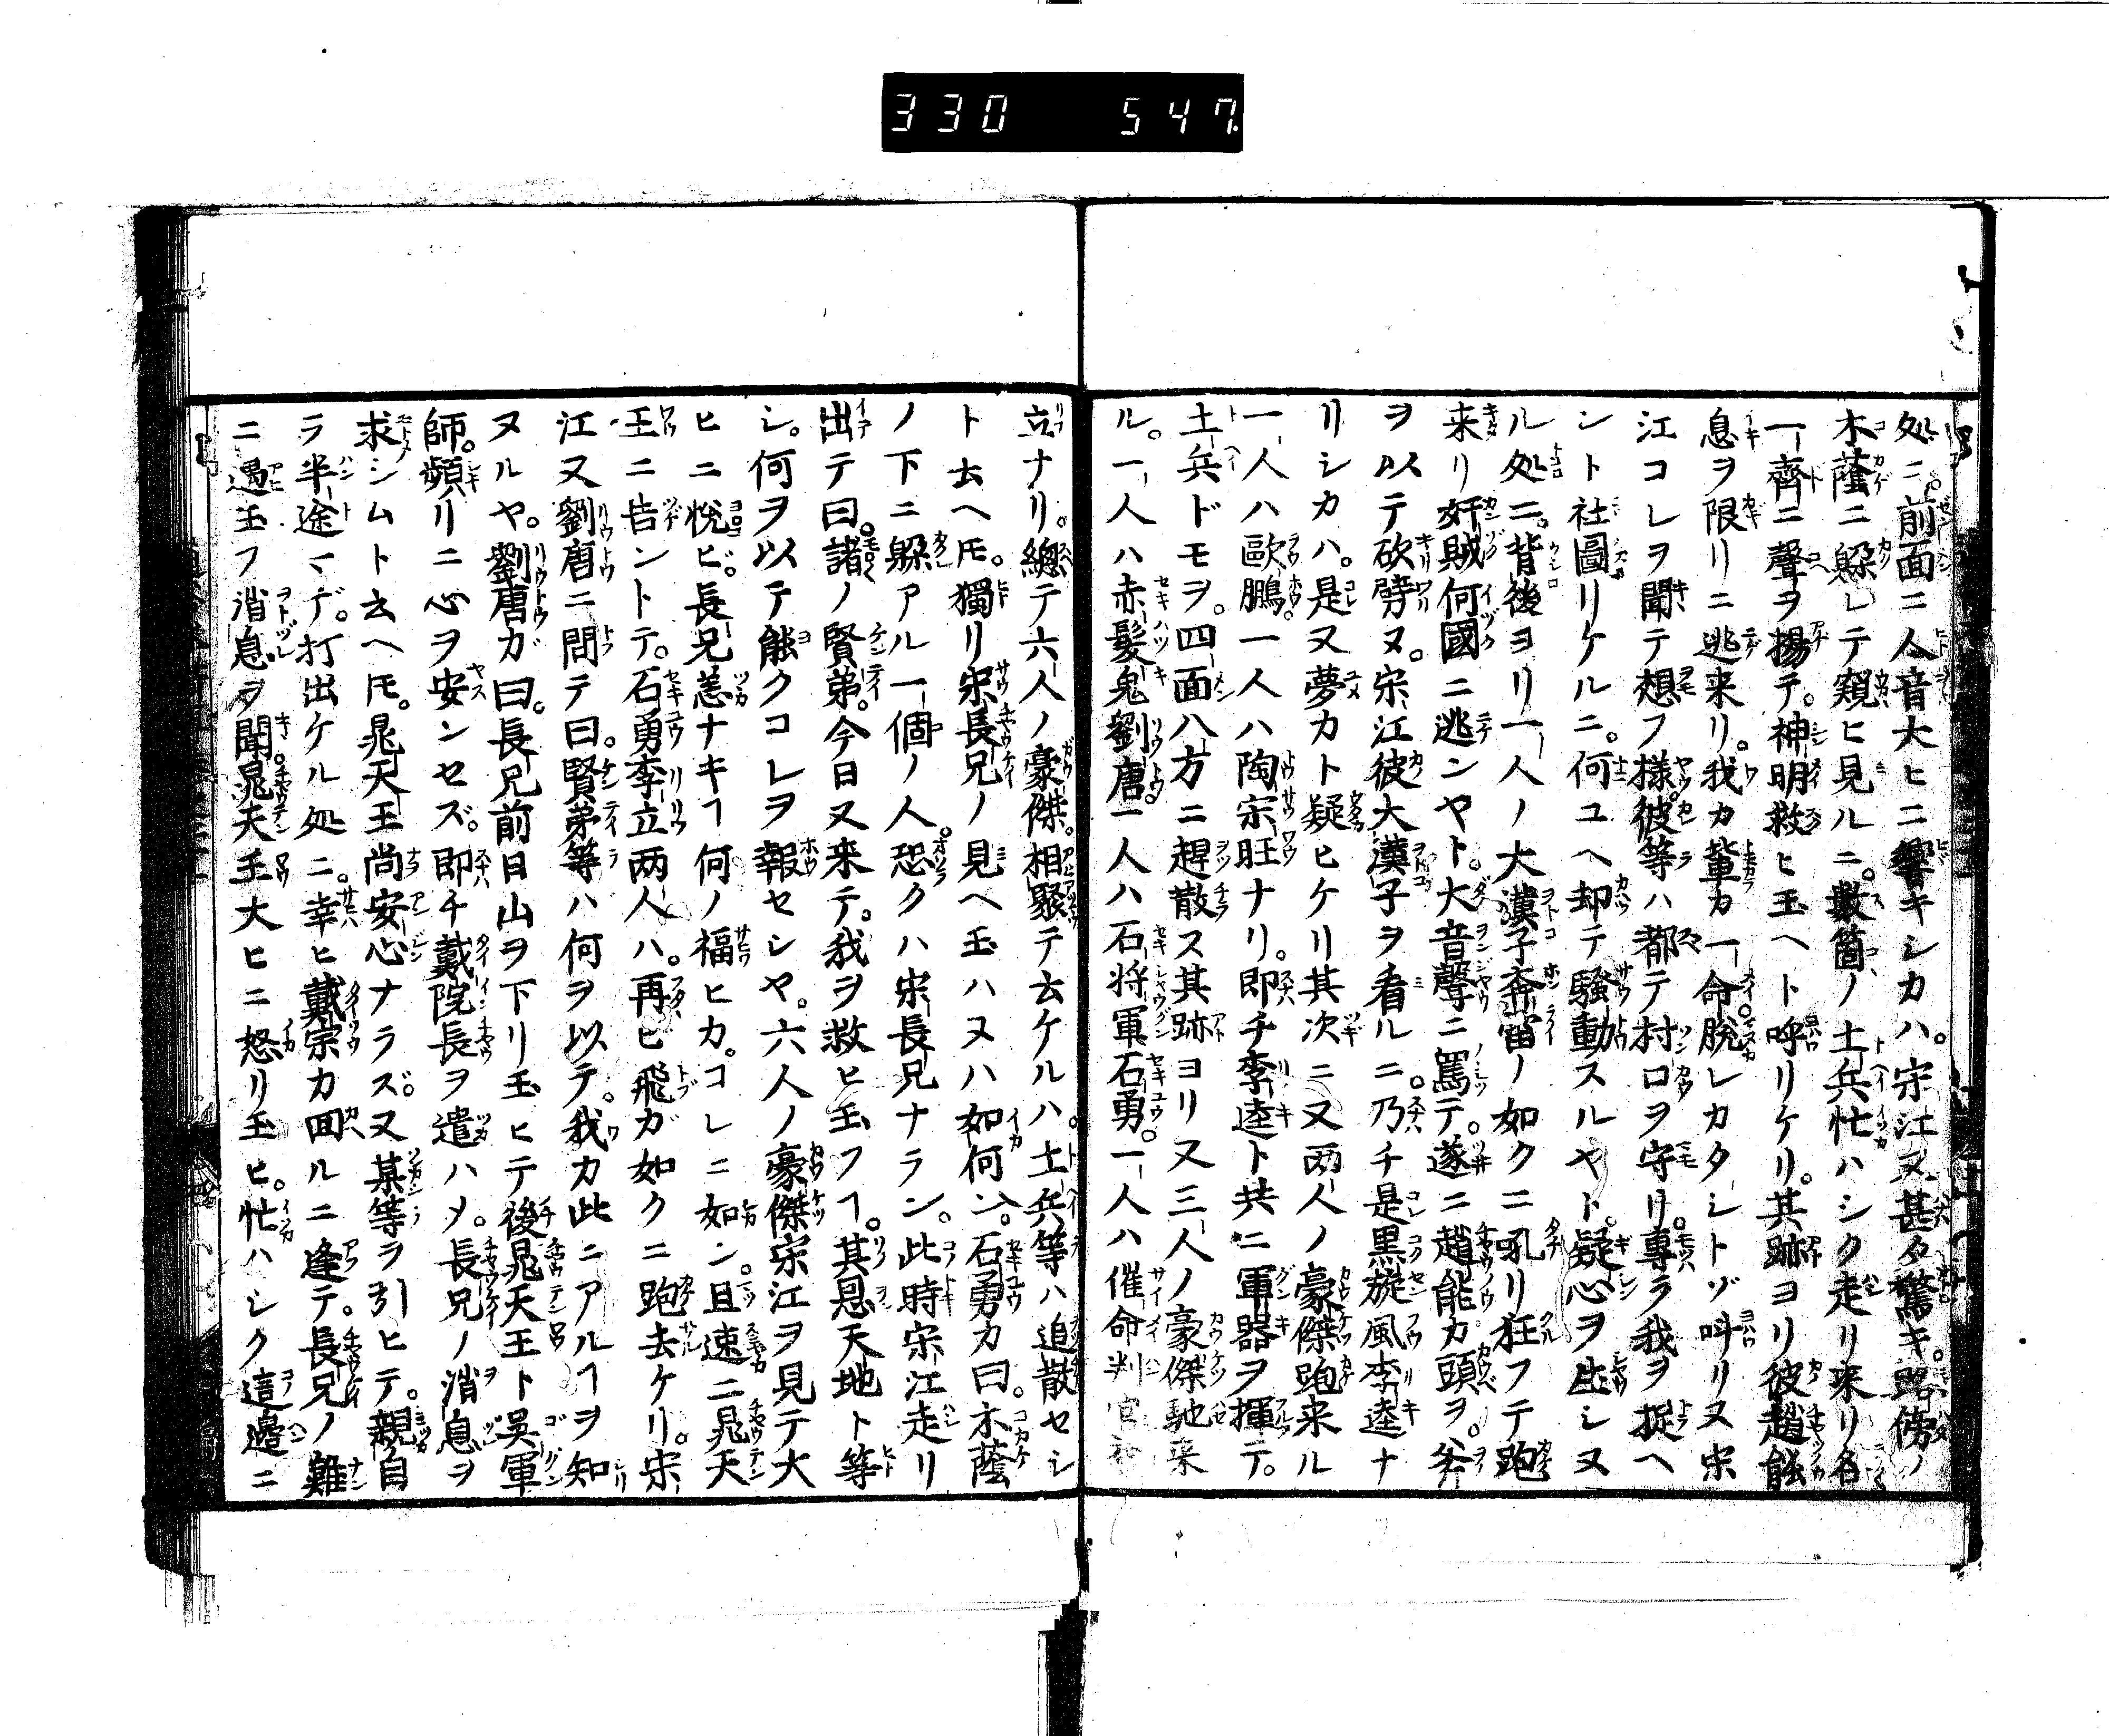 330 547
処ニ。前面ニ人音大ヒニ響キシカハ。宋江又甚タ驚キ。路傍ノ
木蔭ニ躱レテ窺ヒ見ルニ。數箇ノ土兵忙ハシク走リ来リ各
一齊ニ聲ヲ揚テ。神明救ヒ玉ヘト呼リケリ。其跡ヨリ彼趙能
息ヲ限リニ逃来リ。我カ輩カ一命脱レカタシトゾ叫リヌ宋
江コレヲ聞テ想フ様。彼等ハ都テ村口ヲ守リ。專ラ我ヲ捉ヘ
ント社圖リケルニ。何ユヘ却テ騒動スルヤト。疑心ヲ生シヌ
ル処ニ。背後ヨリ一人ノ大漢子奔雷ノ如クニ吼リ狂フテ跑
来リ奸賊何國ニ逃ンヤト。大音聲ニ罵テ。遂ニ趙能カ頭ヲ。斧
ヲ以テ砍劈ヌ。宋江彼大漢子ヲ看ルニ。乃チ是黒旋風李逵ナ
リシカハ。是又夢カト疑ヒケリ其次ニ又両人ノ豪傑跑来ル
一人ハ歐鵬。一人ハ陶宗旺ナリ。即チ李逵ト共ニ軍器ヲ揮テ。
土兵ドモヲ。四面八方ニ趕散ス其跡ヨリ又三人ノ豪傑馳来
ル。一人ハ赤髪鬼劉唐。一人ハ石将軍石勇。一人ハ催命判官李
立ナリ。總テ六人ノ豪傑。相聚テ云ケルハ。土兵等ハ追散セシ
ト云ヘ𪜈。獨リ宋長兄ノ見ヘ玉ハヌハ如何ン。石勇カ曰。木蔭
ノ下ニ躱アル一個ノ人。恐クハ宋長兄ナラン。此時宋江走リ
出テ曰。諸ノ賢弟。今日又来テ。我ヲ救ヒ玉フヿ。其恩天地ト等
シ。何ヲ以テ能クコレヲ報セシヤ。六人ノ豪傑宋江ヲ見テ大
ヒニ悦ビ。長兄恙ナキヿ何ノ福ヒカ。コレニ如ン。且速ニ晁天
王ニ告ントテ。石勇李立両人ハ。再ビ飛ガ如クニ跑去ケリ。宋
江又劉唐ニ問テ曰。賢弟等ハ何ヲ以テ。我カ此ニアルヿヲ知
ヌルヤ。劉唐ガ曰。長兄前日山ヲ下リ玉ヒテ後晁天王ト呉軍
師。頻リニ心ヲ安ンセズ。即チ戴院長ヲ遣ハメ。長兄ノ消息ヲ
求シムト云ヘ𪜈。晁天王尚安心ナラズ。又某等ヲ引ヒテ。親自
ラ半途マデ。打出ケル処ニ。幸ヒ戴宗カ回ルニ逢テ。長兄ノ難
ニ遇玉フ消息ヲ聞。晁天王大ヒニ怒リ玉ヒ。忙ハシク這邊ニ